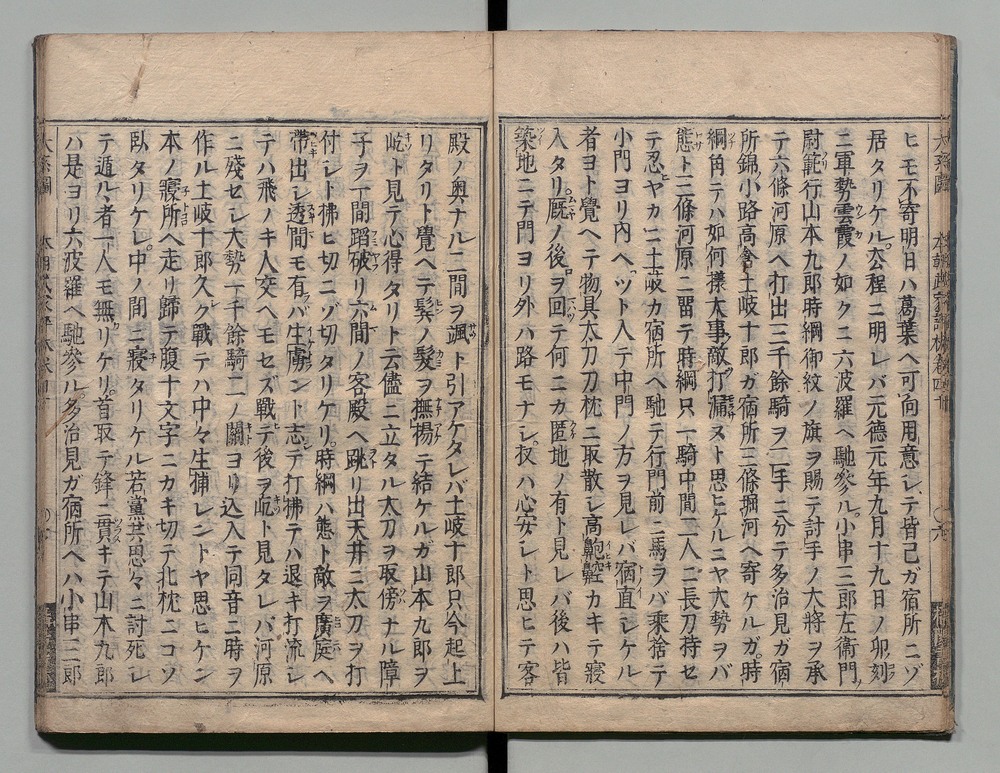 ヒモ不寄明日ハ葛葉ヘ可向用意シテ皆己ガ宿所ニゾ
居タリケル。去程ニ明レバ元徳元年九月十九日ノ卯刻
ニ軍勢雲霞ノ如クニ六波羅ヘ馳參ル。小串三郎左衛門
尉範行山本九郎時綱御紋ノ旗ヲ賜テ討手ノ大將ヲ承
テ六條河原ヘ打出三千餘騎ヲ二手ニ分テ多治見ガ宿
所錦小路高倉土岐十郎ガ宿所三條堀河ヘ寄ケルガ。時
綱角テハ如何樣大事敵打漏ヌト思ヒケルニヤ大勢ヲバ
態ト二條河原ニ留テ時綱只一騎中間二人ニ長刀持セ
テ忍ヤカニ土岐カ宿所ヘ馳テ行門前ニ馬ヲバ乘捨テ
小門ヨリ内ヘツト入テ中門ノ方ヲ見レバ宿直シケル
者ヨト覺ヘテ物具太刀刀枕ニ取散シ高鼾カキテ寢
入タリ。厩ノ後ヲ回テ何ニカ匿地ノ有ト見レバ後ハ皆
築地ニテ門ヨリ外ハ路モナシ。扨ハ心安シト思ヒテ客
殿ノ奥ナル二間ヲ颯ト引アケタレバ土岐十郎只今起上
リタリト覺ヘテ鬢ノ髮ヲ撫揚テ結ケルガ山本九郎ヲ
屹ト見テ心得タリト云儘ニ立タル太刀ヲ取傍ナル障
子ヲ一間蹈破リ六間ノ客殿ヘ跳リ出天井ニ太刀ヲ打
付シト拂ヒ切ニゾ切タリケリ。時綱ハ態ト敵ヲ廣庭ヘ
帶出シ透間モ有バ生虜ント志テ打拂テハ退キ打流シ
テハ飛ノキ人交ヘモセズ戰テ後ヲ屹ト見タレバ河原
ニ殘セシ大勢二千餘騎二ノ關ヨリ込入テ同音ニ時ヲ
作ル土岐十郎久ク戰テハ中々生捕レントヤ思ヒケン
本ノ寢所ヘ走リ歸テ腹十文字ニカキ切テ北枕ニコソ
臥タリケレ。中ノ間ニ寢タリケル若黨共思々ニ討死シ
テ遁ル者一人モ無リケリ。首取テ鋒ニ貫キテ山本九郎
ハ是ヨリ六波羅ヘ馳參ル。多治見ガ宿所ヘハ小串三郎